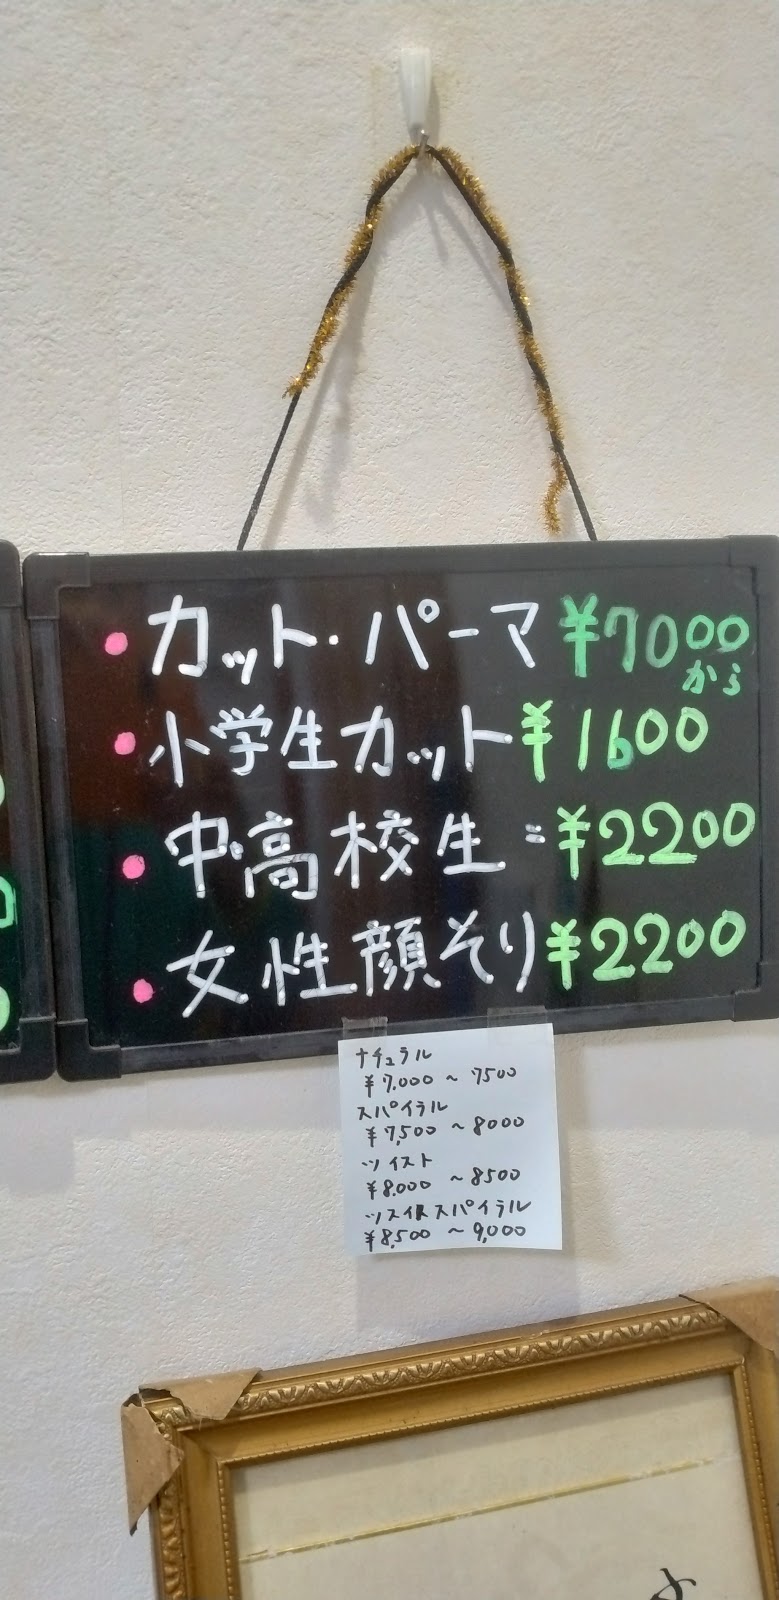 ・カット・パーマ ¥7000
から
・小学生カット ¥1600
・中・高校生 : ¥2200
・女性顔そり ¥2200
ナチュラル
¥7,000 ～ 7500
スパイラル
¥7,500 ～ 8000
ツイスト
¥8,000 ～ 8500
スパイラル
¥8,500 ～ 9,000